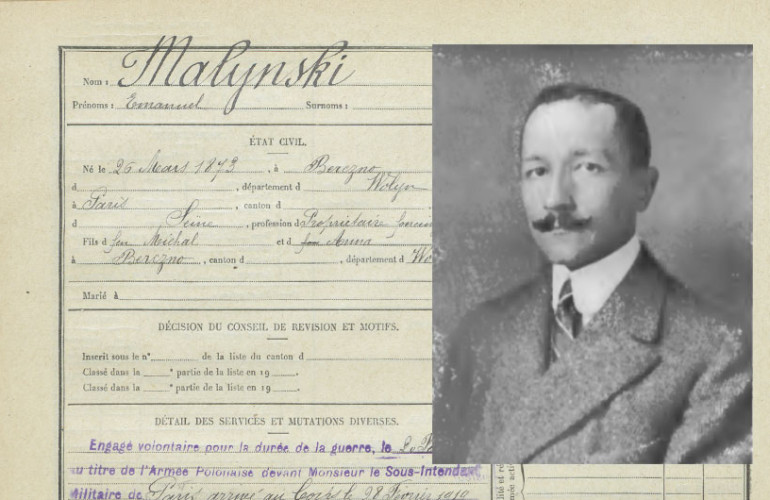 Nom : Malynski
Prénoms : Emanuel Surnoms :
ÉTAT CIVIL.
Né le 26 Mars 1873, à Berezno
d , département d Wolyn
à Paris , canton d
d Seine , profession d Propriétaire
Fils d feu Michal et d feue Anna
à Berezno , canton d , département d Wo
Marié à
DÉCISION DU CONSEIL DE REVISION ET MOTIFS.
Inscrit sous le n° de la liste du canton d
Classé dans la ᵉ partie de la liste en 19 .
Classé dans la ᵉ partie de la liste en 19 .
DÉTAIL DES SERVICES ET MUTATIONS DIVERSES.
Engagé volontaire pour la durée de la guerre, le
au titre de l'Armée Polonaise devant Monsieur le Sous-Intendant
Militaire de Paris arrivé au Corps le 28 Février 1919